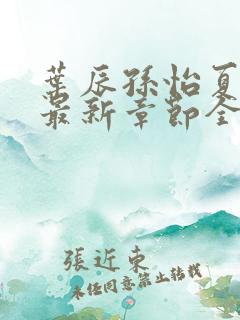 葉辰孫怡夏
最新章節全
張近東
未經同意禁止轉載